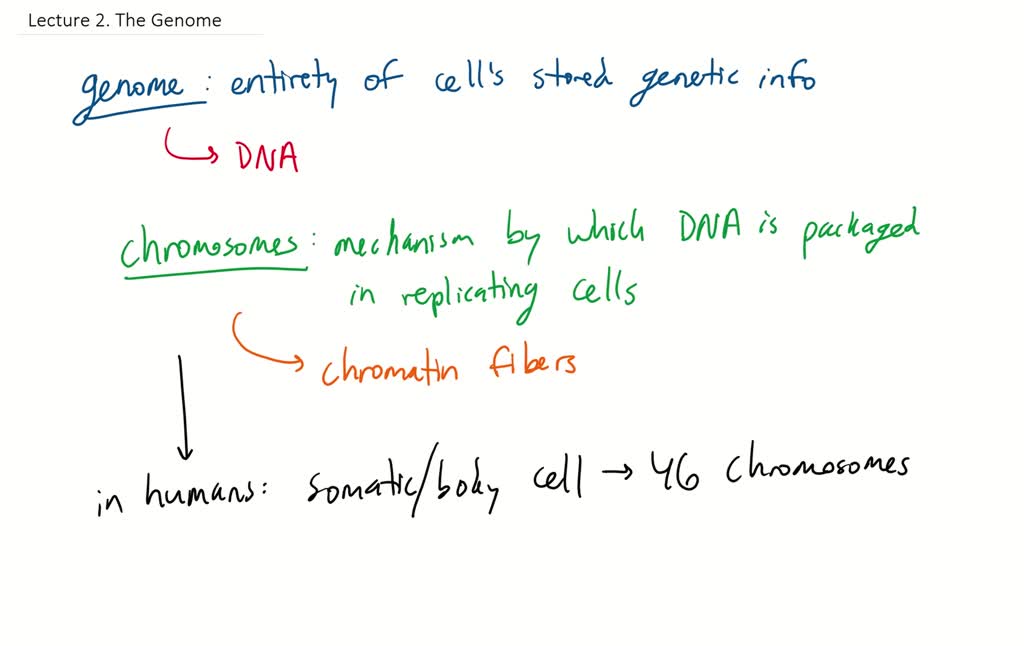 Lecture 2. The Genome
genome: entirety of cell's stored genetic info
DNA
chromosomes: mechanism by which DNA is packaged
in replicating cells
chromatin fibers
in humans: somatic/body cell → 46 chromosomes